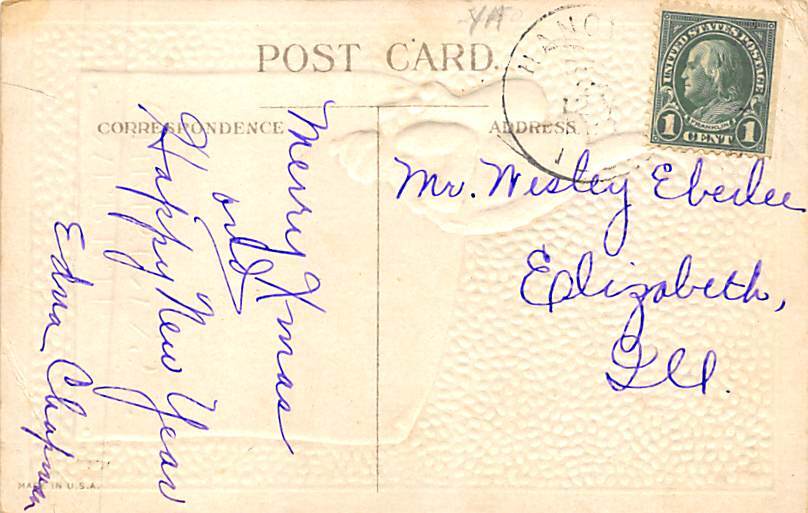 POST CARD.
CORRESPONDENCE
ADDRESS
UNITED STATES POSTAGE
FRANKLIN
1 CENT 1
Merry Xmas
and
Happy New Year
Edna Chapman
Mr. Wesley Eberlee
Elizabeth,
Ill.
MADE IN U.S.A.